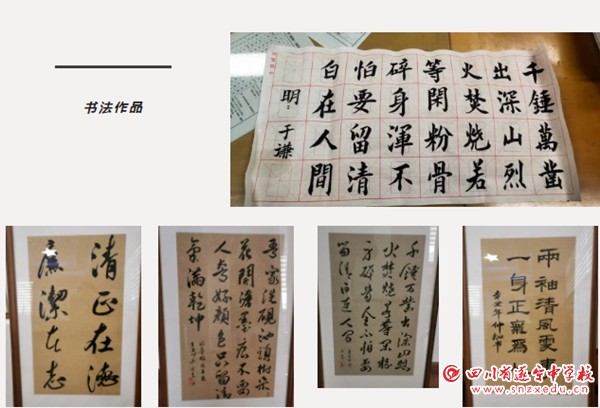 书法作品
千錘萬鑿
出深山烈
火焚燒若
等閑粉骨
碎身渾不
怕要留清
白在人間
明：于謙
清正在德
廉潔在志
吾家洗硯池頭樹朵
花開澹墨痕不要
人誇好顏色只留清
氣滿乾坤
千錘万鑿出深山烈
火焚燒若等閑粉
骨碎身全不怕要
留清白在人間
兩袖清風
一身正氣為
四川省遂宁中学校
www.snzxedu.cn